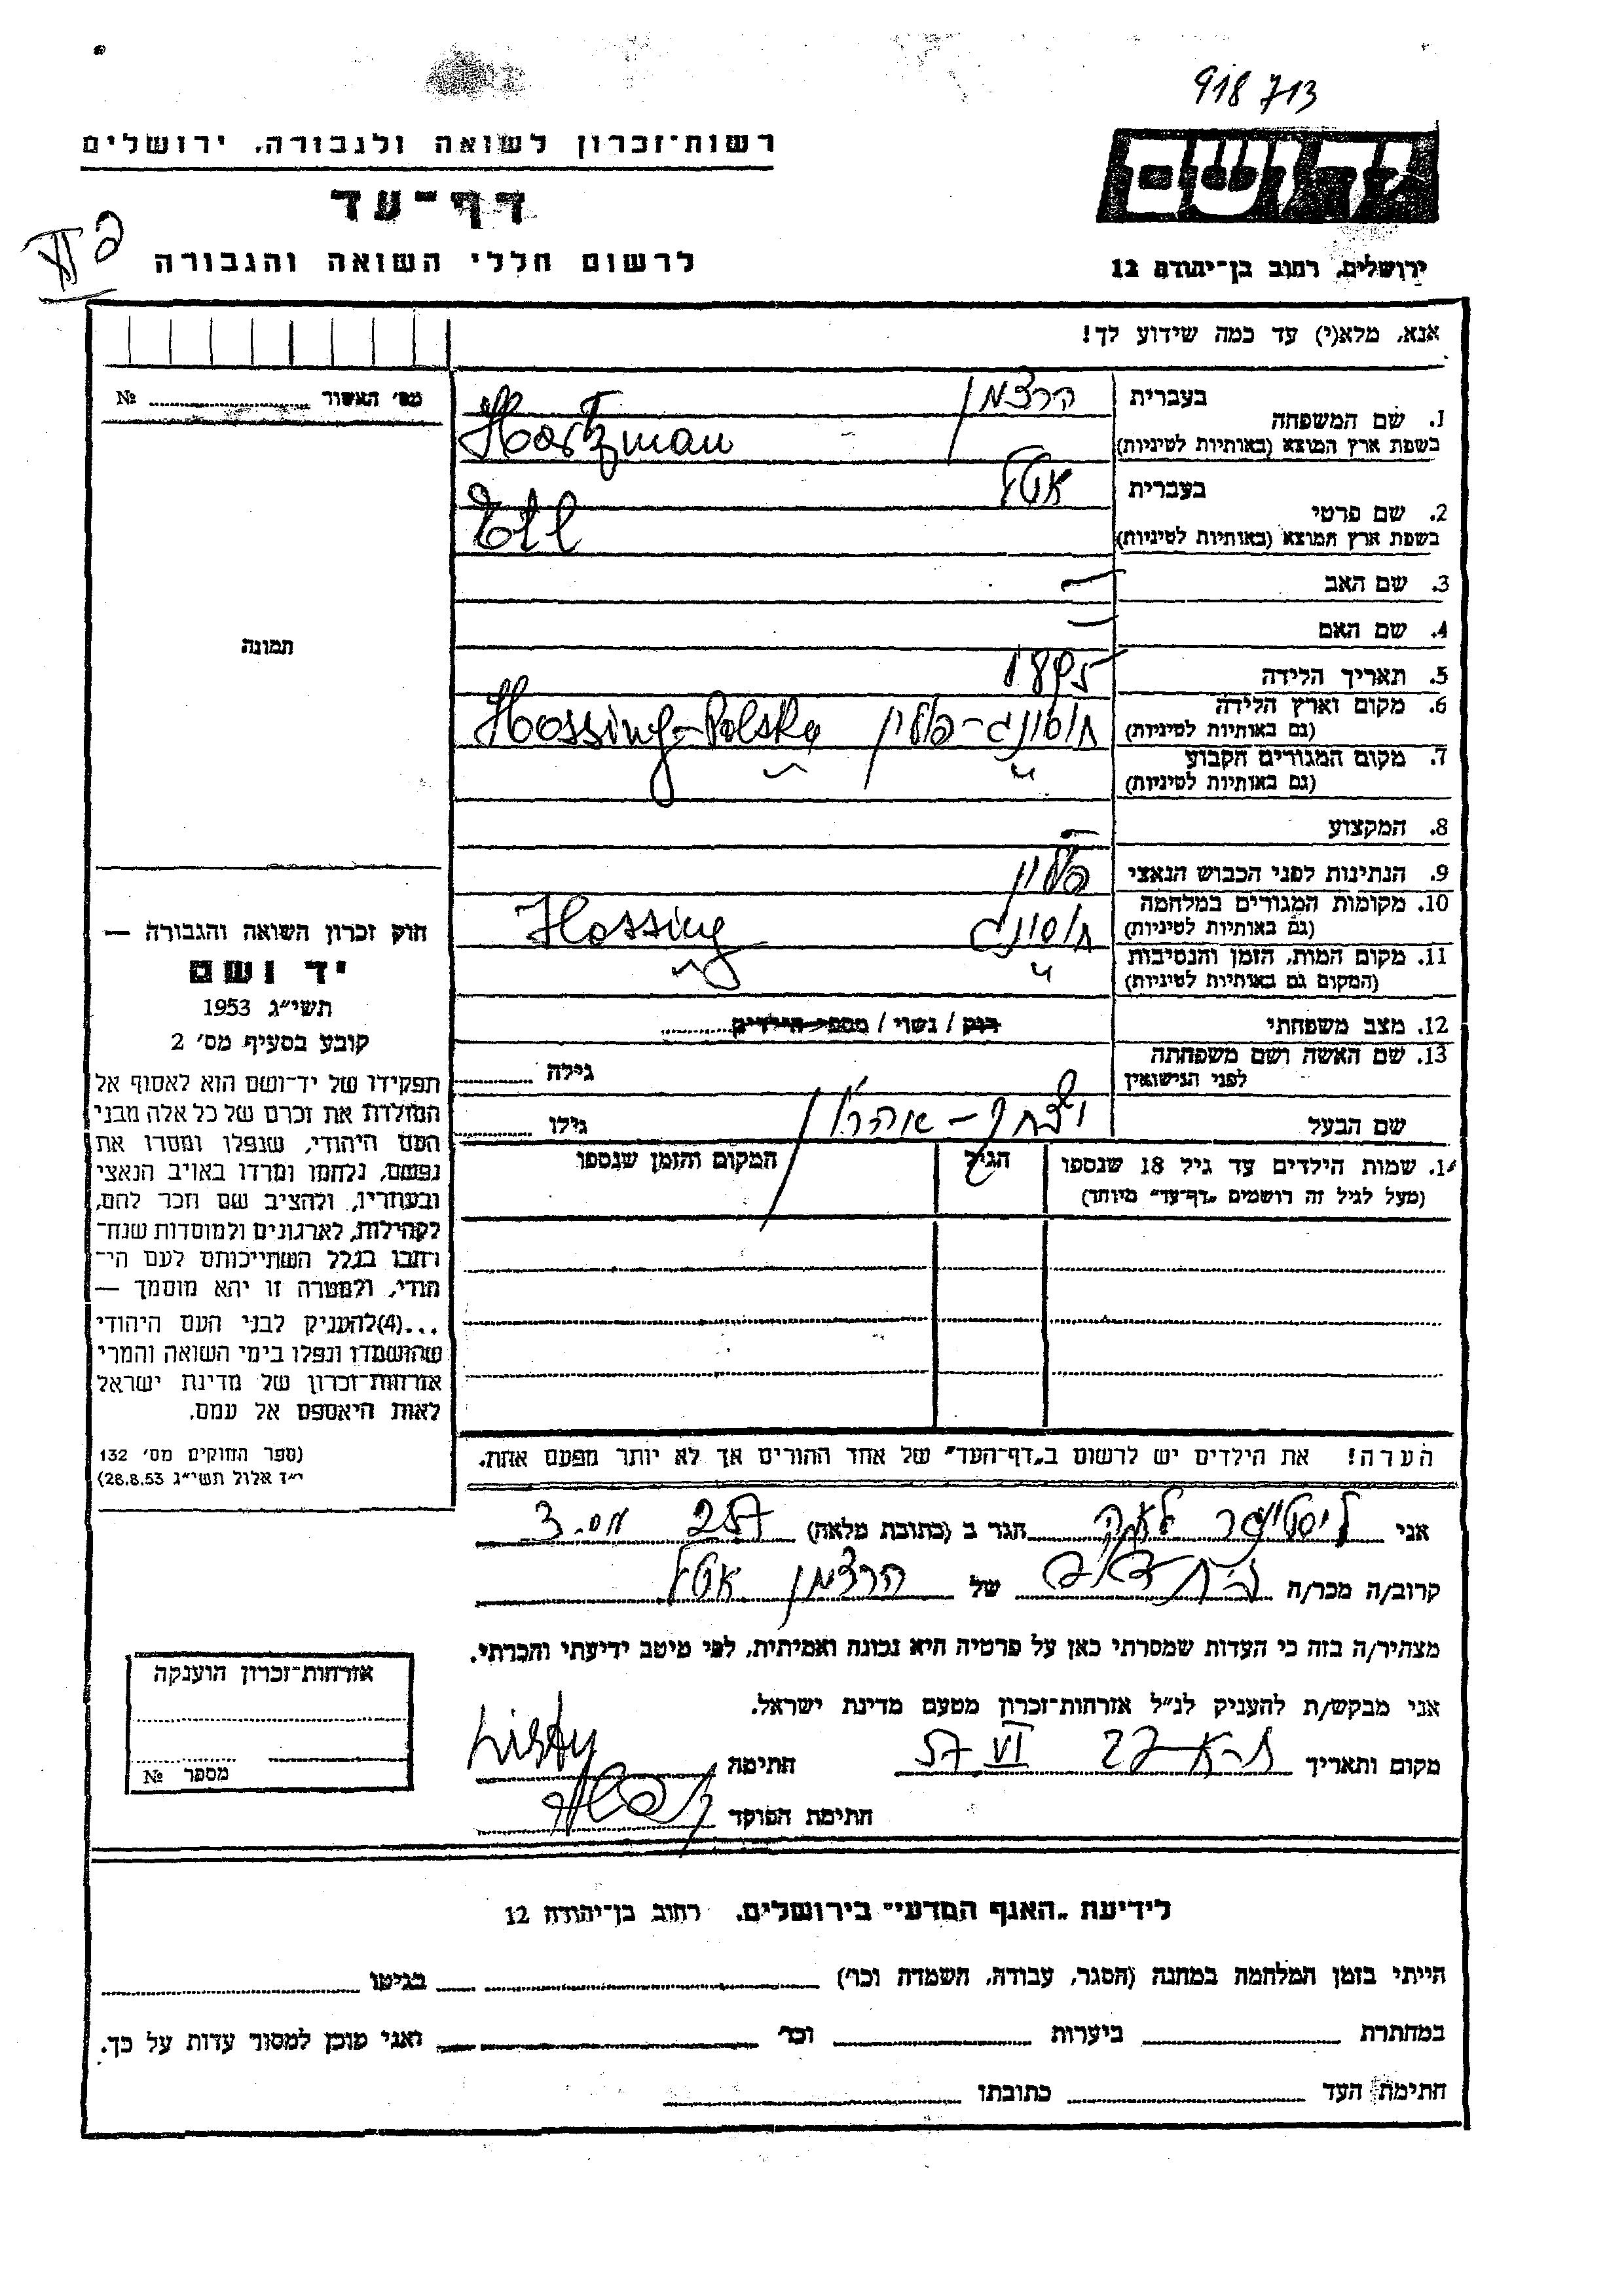 918713
רשות־זכרון לשואה ולגבורה, ירושלים
יד ושם
דף־עד
לרשום חללי השואה והגבורה
ירושלים, רחוב בן־יהודה 12
אנא, מלא(י) עד כמה שידוע לך!
מס׳ האשור № 
1. שם המשפחה
בעברית הרצמן
בשפת ארץ המוצא (באותיות לטיניות) Hertzman
2. שם פרטי
בעברית אטל
בשפת ארץ המוצא (באותיות לטיניות) Etl
3. שם האב —
4. שם האם —
תמונה
5. תאריך הלידה 1895
6. מקום וארץ הלידה
(גם באותיות לטיניות) חוסינג - פולין Hossing - Polska
7. מקום המגורים הקבוע
(גם באותיות לטיניות) ״ ״
8. המקצוע —
9. הנתינות לפני הכבוש הנאצי פולין
10. מקומות המגורים במלחמה
(גם באותיות לטיניות) חוסינג Hossing
11. מקום המות, הזמן והנסיבות
(המקום גם באותיות לטיניות) ״ ״
12. מצב משפחתי רוק / נשוי / מספר הילדים
13. שם האשה ושם משפחתה
לפני הנישואין גילה
שם הבעל יצחק - אהרון גילו
1. שמות הילדים עד גיל 18 שנספו הגיל המקום והזמן שנספו
(מעל לגיל זה רושמים „דף־עד״ מיוחד)
הערה! את הילדים יש לרשום ב„דף־העד״ של אחד ההורים אך לא יותר מפעם אחת.
חוק זכרון השואה והגבורה —
יד ושם
תשי״ג 1953
קובע בסעיף מס׳ 2
תפקידו של יד־ושם הוא לאסוף אל
המולדת את זכרם של כל אלה מבני
העם היהודי, שנפלו ומסרו את
נפשם, נלחמו ומרדו באויב הנאצי
ובעוזריו, ולהציב שם וזכר להם,
לקהילות, לארגונים ולמוסדות שנח־
רחבו בגלל השתייכותם לעם הי־
הודי, ולמטרה זו יהא מוסמך —
...(4)להעניק לבני העם היהודי
שהושמדו ונפלו בימי השואה והמרי
אזרחות־זכרון של מדינת ישראל
לאות היאספם אל עמם.
(ספר החוקים מס׳ 132
י״ד אלול תשי״ג 28.8.53)
אני הגר ב (כתובת מלאה)
קרוב/ה מכר/ה של הרצמן אטל
מצהיר/ה בזה כי העדות שמסרתי כאן על פרטיה היא נכונה ואמיתית, לפי מיטב ידיעתי והכרתי.
אני מבקש/ת להעניק לנ״ל אזרחות־זכרון מטעם מדינת ישראל.
מקום ותאריך ת־א 27 VI 57 חתימה
חתימת הפוקד
אזרחות־זכרון הוענקה
מספר №
לידיעת „האגף המדעי״ בירושלים, רחוב בן־יהודה 12
הייתי בזמן המלחמה במחנה (הסגר, עבודה, השמדה וכו׳) בגיטו
במחתרת ביערות וכו׳ ואני מוכן למסור עדות על כך.
חתימת העד כתובתו